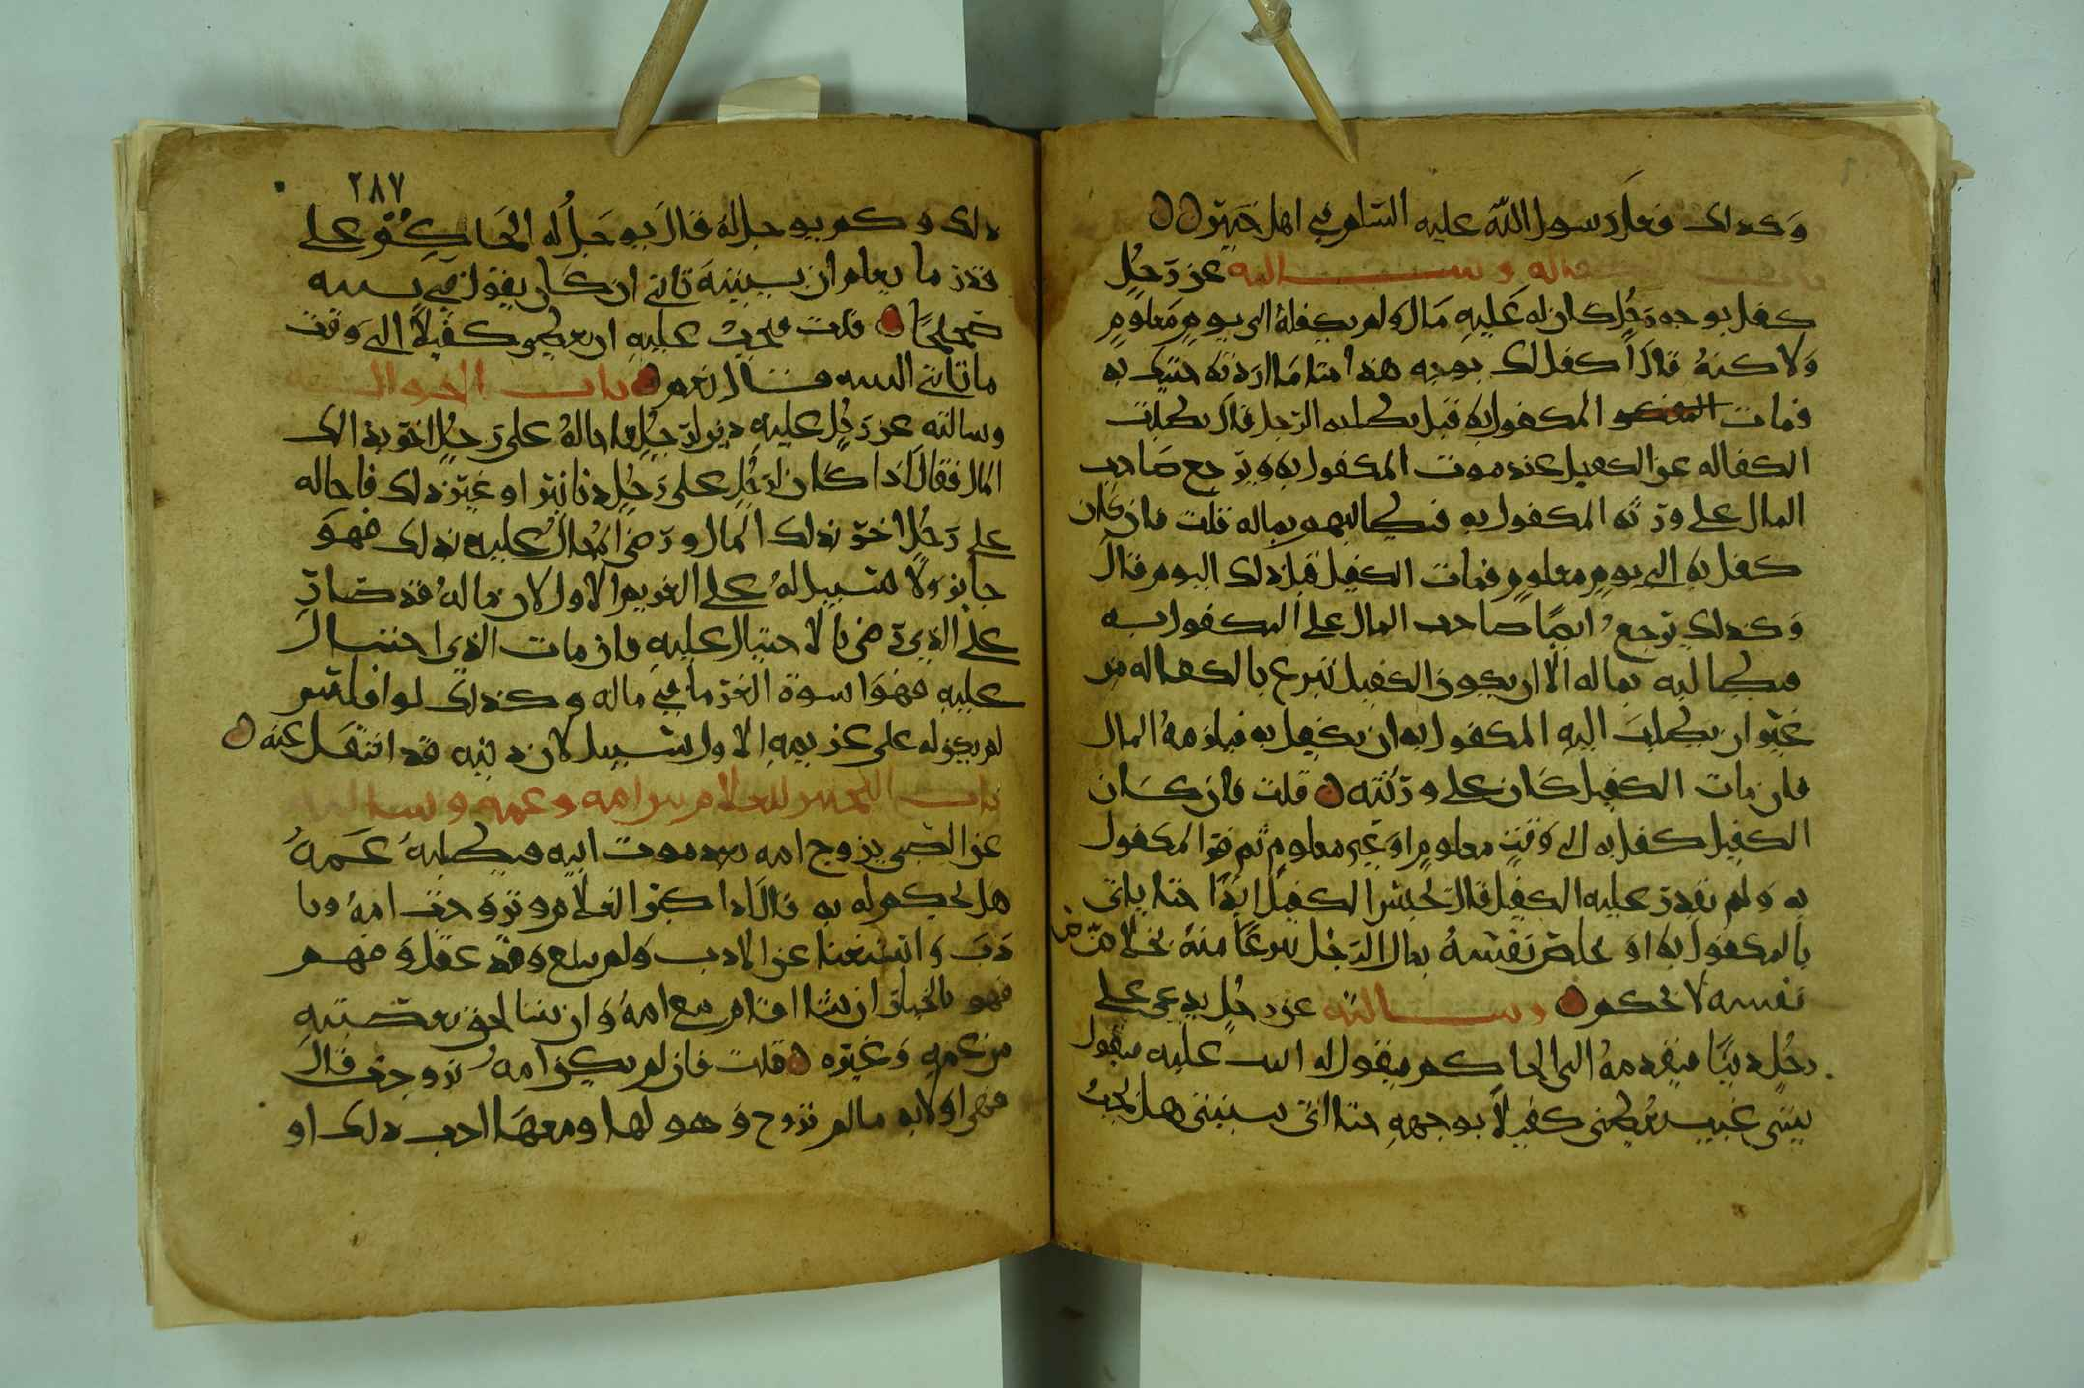 وكذلك فعل رسول الله عليه السلام في اهل خيبر
باب الكفاله وسالته عن رجل
كفل بوجه رجل كان له عليه مال ولم يكفله الى يوم معلوم
ولاكنه قال اكفل لك بوجه هذا متا ما اردته جيتك به
فمات المكفول به قبل يطلبه الرجل قال بطلت
الكفاله عن الكفيل عند موت المكفول به ويرجع صاحب
المال على ورثه المكفول به فيطالبهم بماله قلت فان كان
كفل به الى يوم معلوم فمات الكفيل قبل ذلك اليوم قال
وكذلك يرجع ايضا صاحب المال على المكفول به
فيطالبه بماله الا ان يكون الكفيل تبرع بالكفاله من
غير ان يطلب اليه المكفول به ان يكفل به فيلزمه المال
فان مات الكفيل كان على ورثته قلت فان كان
الكفيل كفل به الى وقت معلوم او غير معلوم ثم فر المكفول
به ولم يقدر عليه الكفيل قال يحبس الكفيل ابدا حتا ياتي
بالمكفول به او يخلص نفسه بمال الرجل تبرعا منه
نفسه لا بحكم وسالته عن رجل يدعي على
رجل دينا فيقدمه الى الحاكم فيقول له اثبت عليه فيقول
بينتي غيب يعطيني كفيلا بوجهه حتا اتي ببينتي هل يجب
٢٨٧
ذلك وكم يوجل له قال يوجل له الحاكم على
قدر ما يعلم ان بينته تاتي ان كان يقول في بينته
صحيحا قلت فيجب عليه ان يعطي كفيلا الى وقت
ما تاتي البينه قال نعم باب الحواله
وسالته عن رجل عليه دين لرجل فاحاله على رجل اخر بذلك
المال فقال اذا كان لرجل على رجل دنانير او غير ذلك فاحاله
على رجل اخر بذلك المال ورضي المحال عليه بذلك فهو
جايز ولا سبيل له على الغريم الاول لان ماله قد صار
على الذي رضي بالاحتيال عليه فان مات الذي احتال
عليه فهو اسوة الغرما في ماله وكذلك لو افلس
لم يكن له على غريمه الاول سبيل لان دينه قد انتقل عنه
باب التخيير للغلام بين امه وعمه وسالته
عن الصبي يزوج امه بعد موت ابيه فيطلبه عمه
هل يحكم له به قال اذا كبر الغلام وتزوجت امه وبا
دب واستغنا عن الادب ولم يبلغ وقد عقل وفهم
فهو بالخيار ان شا اقام مع امه وان شا لحق بعصبته
من عمه وغيره قلت فان لم يكن امه تزوجت قال
فهي اولا به ما لم تزوج وهو لها ومعها احب ذلك او